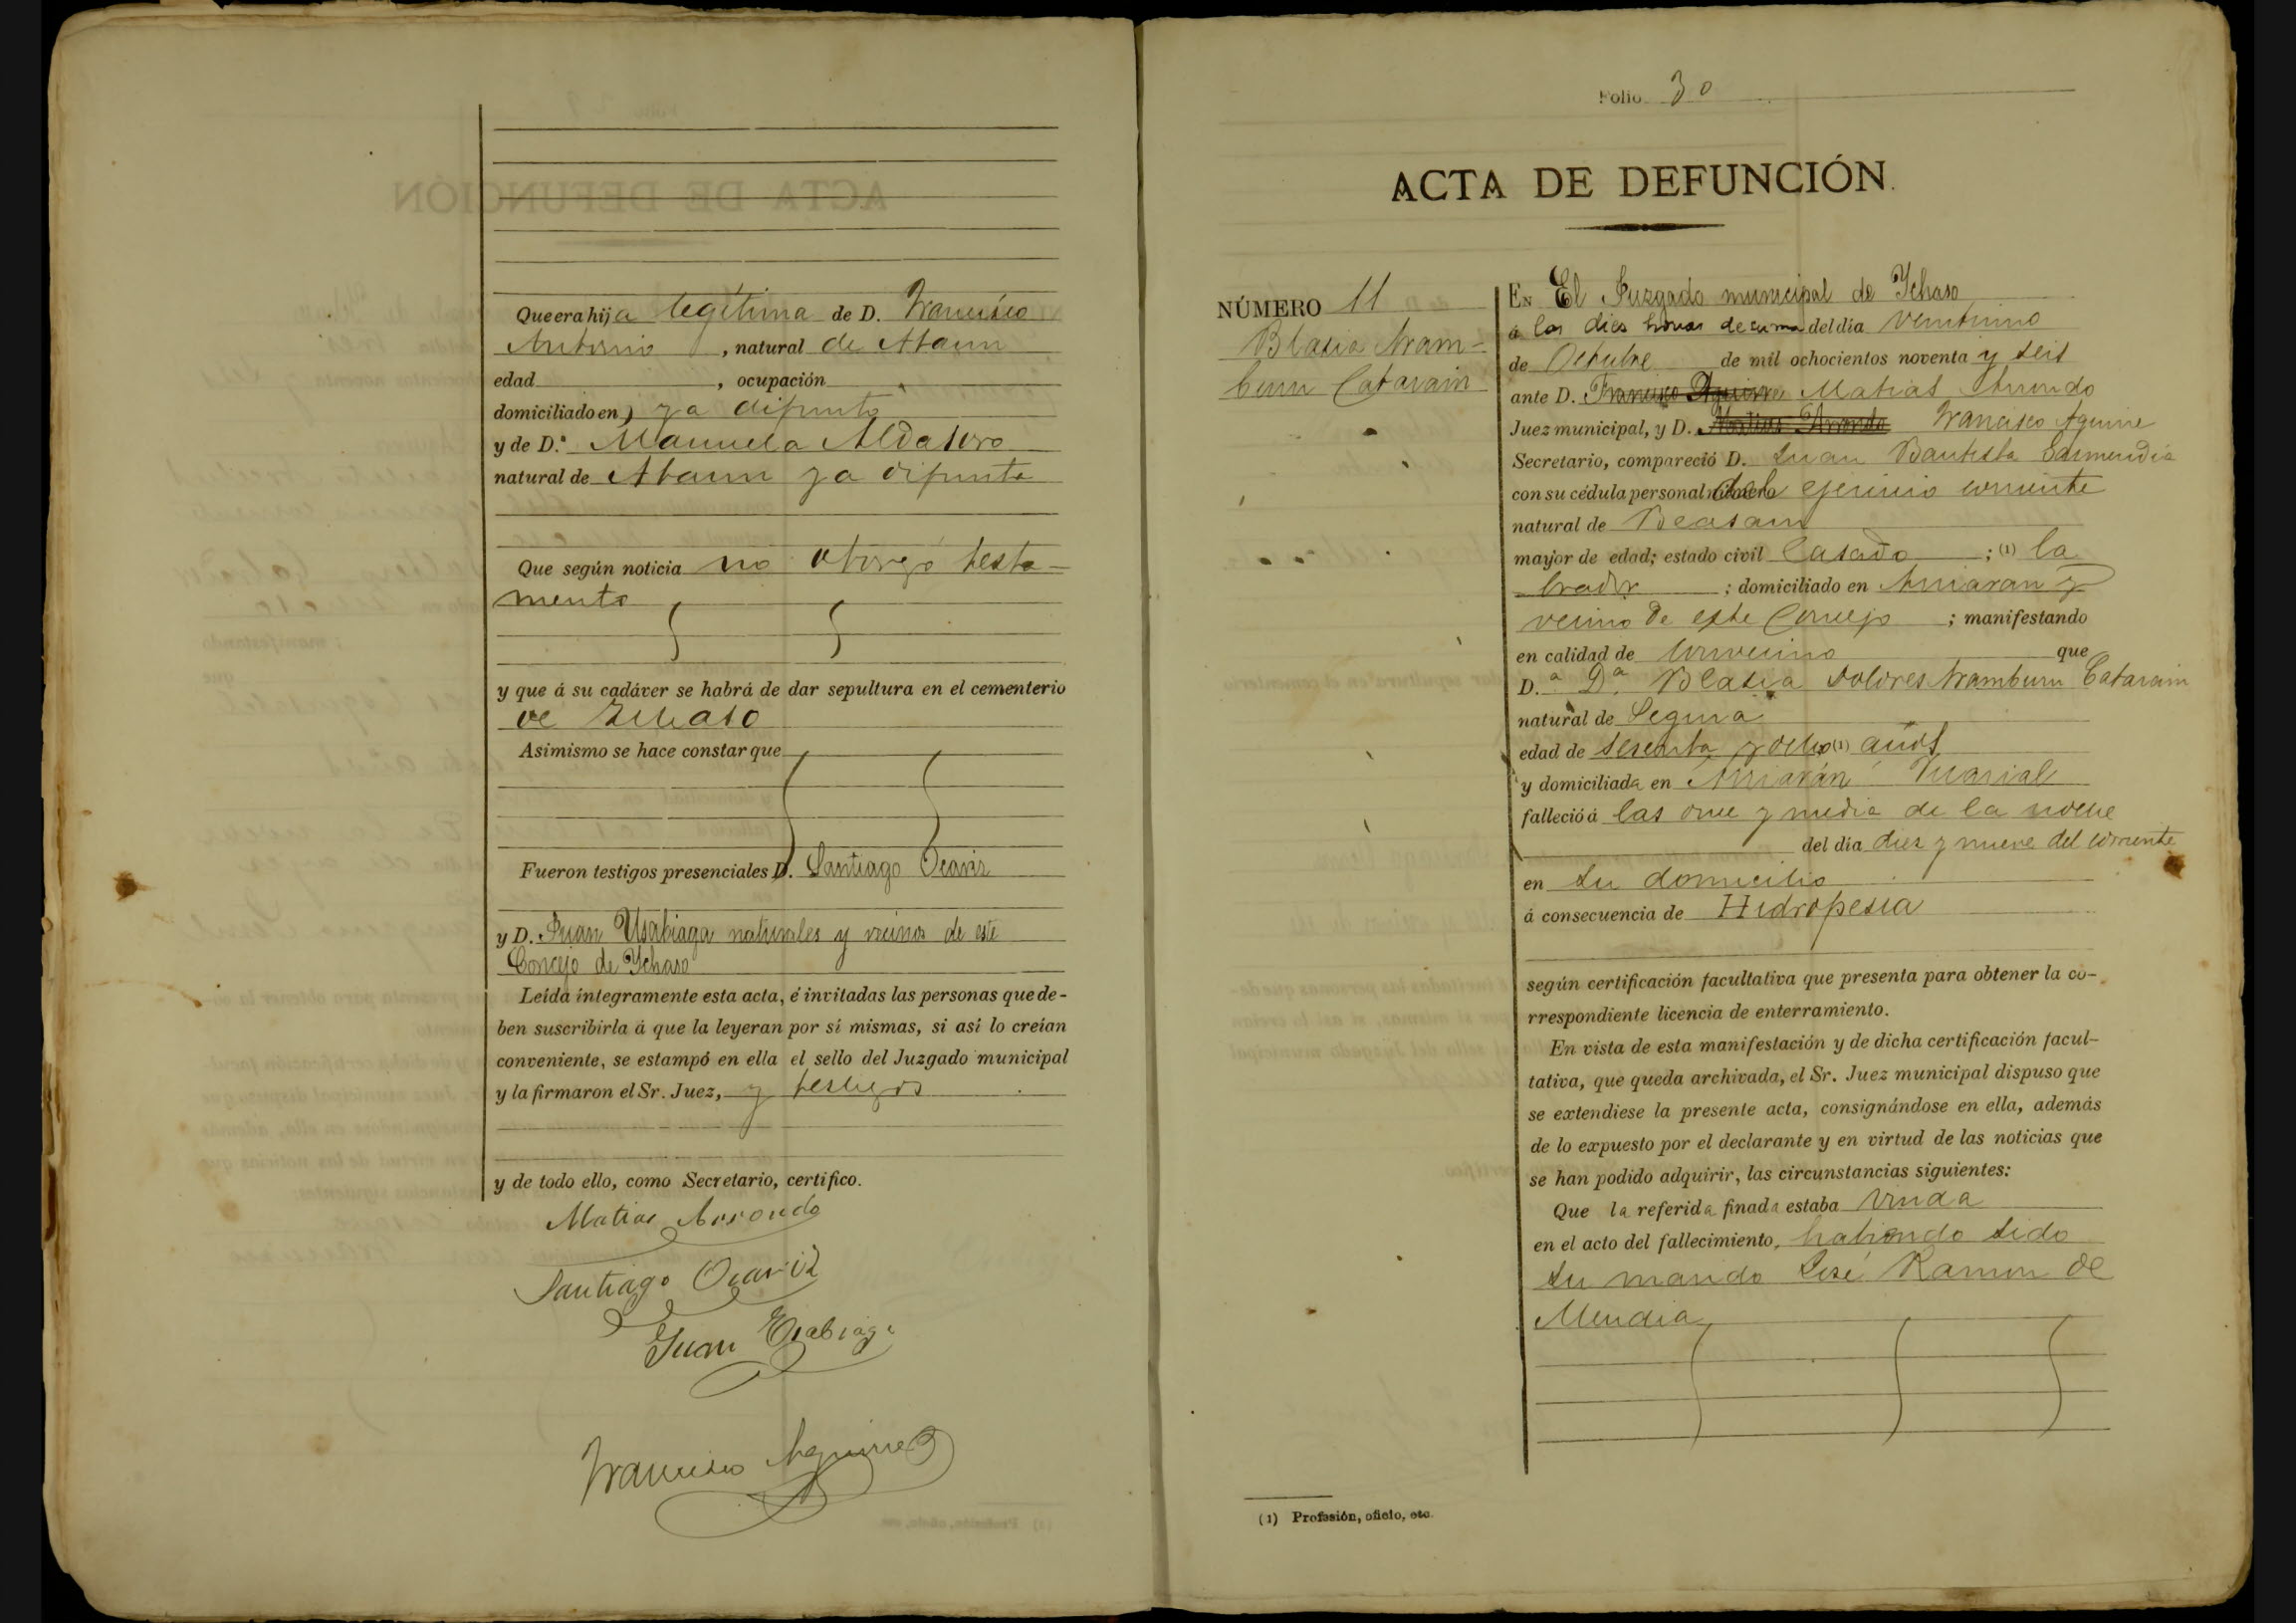 Que era hija legítima de D. Francisco
Antonio , natural de Ataun
edad , ocupación
domiciliado en ya difunto
y de D.ª Manuela Aldasoro
natural de Ataun ya difunta
Que según noticia no otorgó testa-
mento
y que á su cadáver se habrá de dar sepultura en el cementerio
de Ichaso
Asimismo se hace constar que
Fueron testigos presenciales D. Santiago Ocariz
y D. Juan Usabiaga naturales y vecinos de este
Concejo de Ychaso
Leída íntegramente esta acta, é invitadas las personas que de-
ben suscribirla á que la leyeran por sí mismas, si así lo creían
conveniente, se estampó en ella el sello del Juzgado municipal
y la firmaron el Sr. Juez, y testigos
y de todo ello, como Secretario, certifico.
Matias Arrondo
Santiago Ocariz
Juan Usabiaga
Francisco Aguirre
Folio 30
ACTA DE DEFUNCIÓN.
NÚMERO 11
Blasia Aram-
buru Catarain
EN El Juzgado municipal de Ychaso
á las dies horas de su ma del día veintiuno
de Octubre de mil ochocientos noventa y seis
ante D. Francisco Aguirre Matias Arrondo
Juez municipal, y D. Matias Arrondo Francisco Aguirre
Secretario, compareció D. Juan Bautista Garmendia
con su cédula personal número del ejercicio corriente
natural de Beasain
mayor de edad; estado civil Casado ; (1) la
brador ; domiciliado en Arriaran y
vecino de este Concejo ; manifestando
en calidad de convecino que
D.ª Dª Blasia Dolores Aramburu Catarain
natural de Segura
edad de sesenta y ocho (1) años
y domiciliada en Arriarán
falleció á las once y media de la noche
del día diez y nueve del corriente
en su domicilio
á consecuencia de Hidropesia
según certificación facultativa que presenta para obtener la co-
rrespondiente licencia de enterramiento.
En vista de esta manifestación y de dicha certificación facul-
tativa, que queda archivada, el Sr. Juez municipal dispuso que
se extendiese la presente acta, consignándose en ella, además
de lo expuesto por el declarante y en virtud de las noticias que
se han podido adquirir, las circunstancias siguientes:
Que la referida finada estaba viuda
en el acto del fallecimiento, habiendo sido
su marido José Ramon de
Mendia
(1) Profesión, oficio, etc.